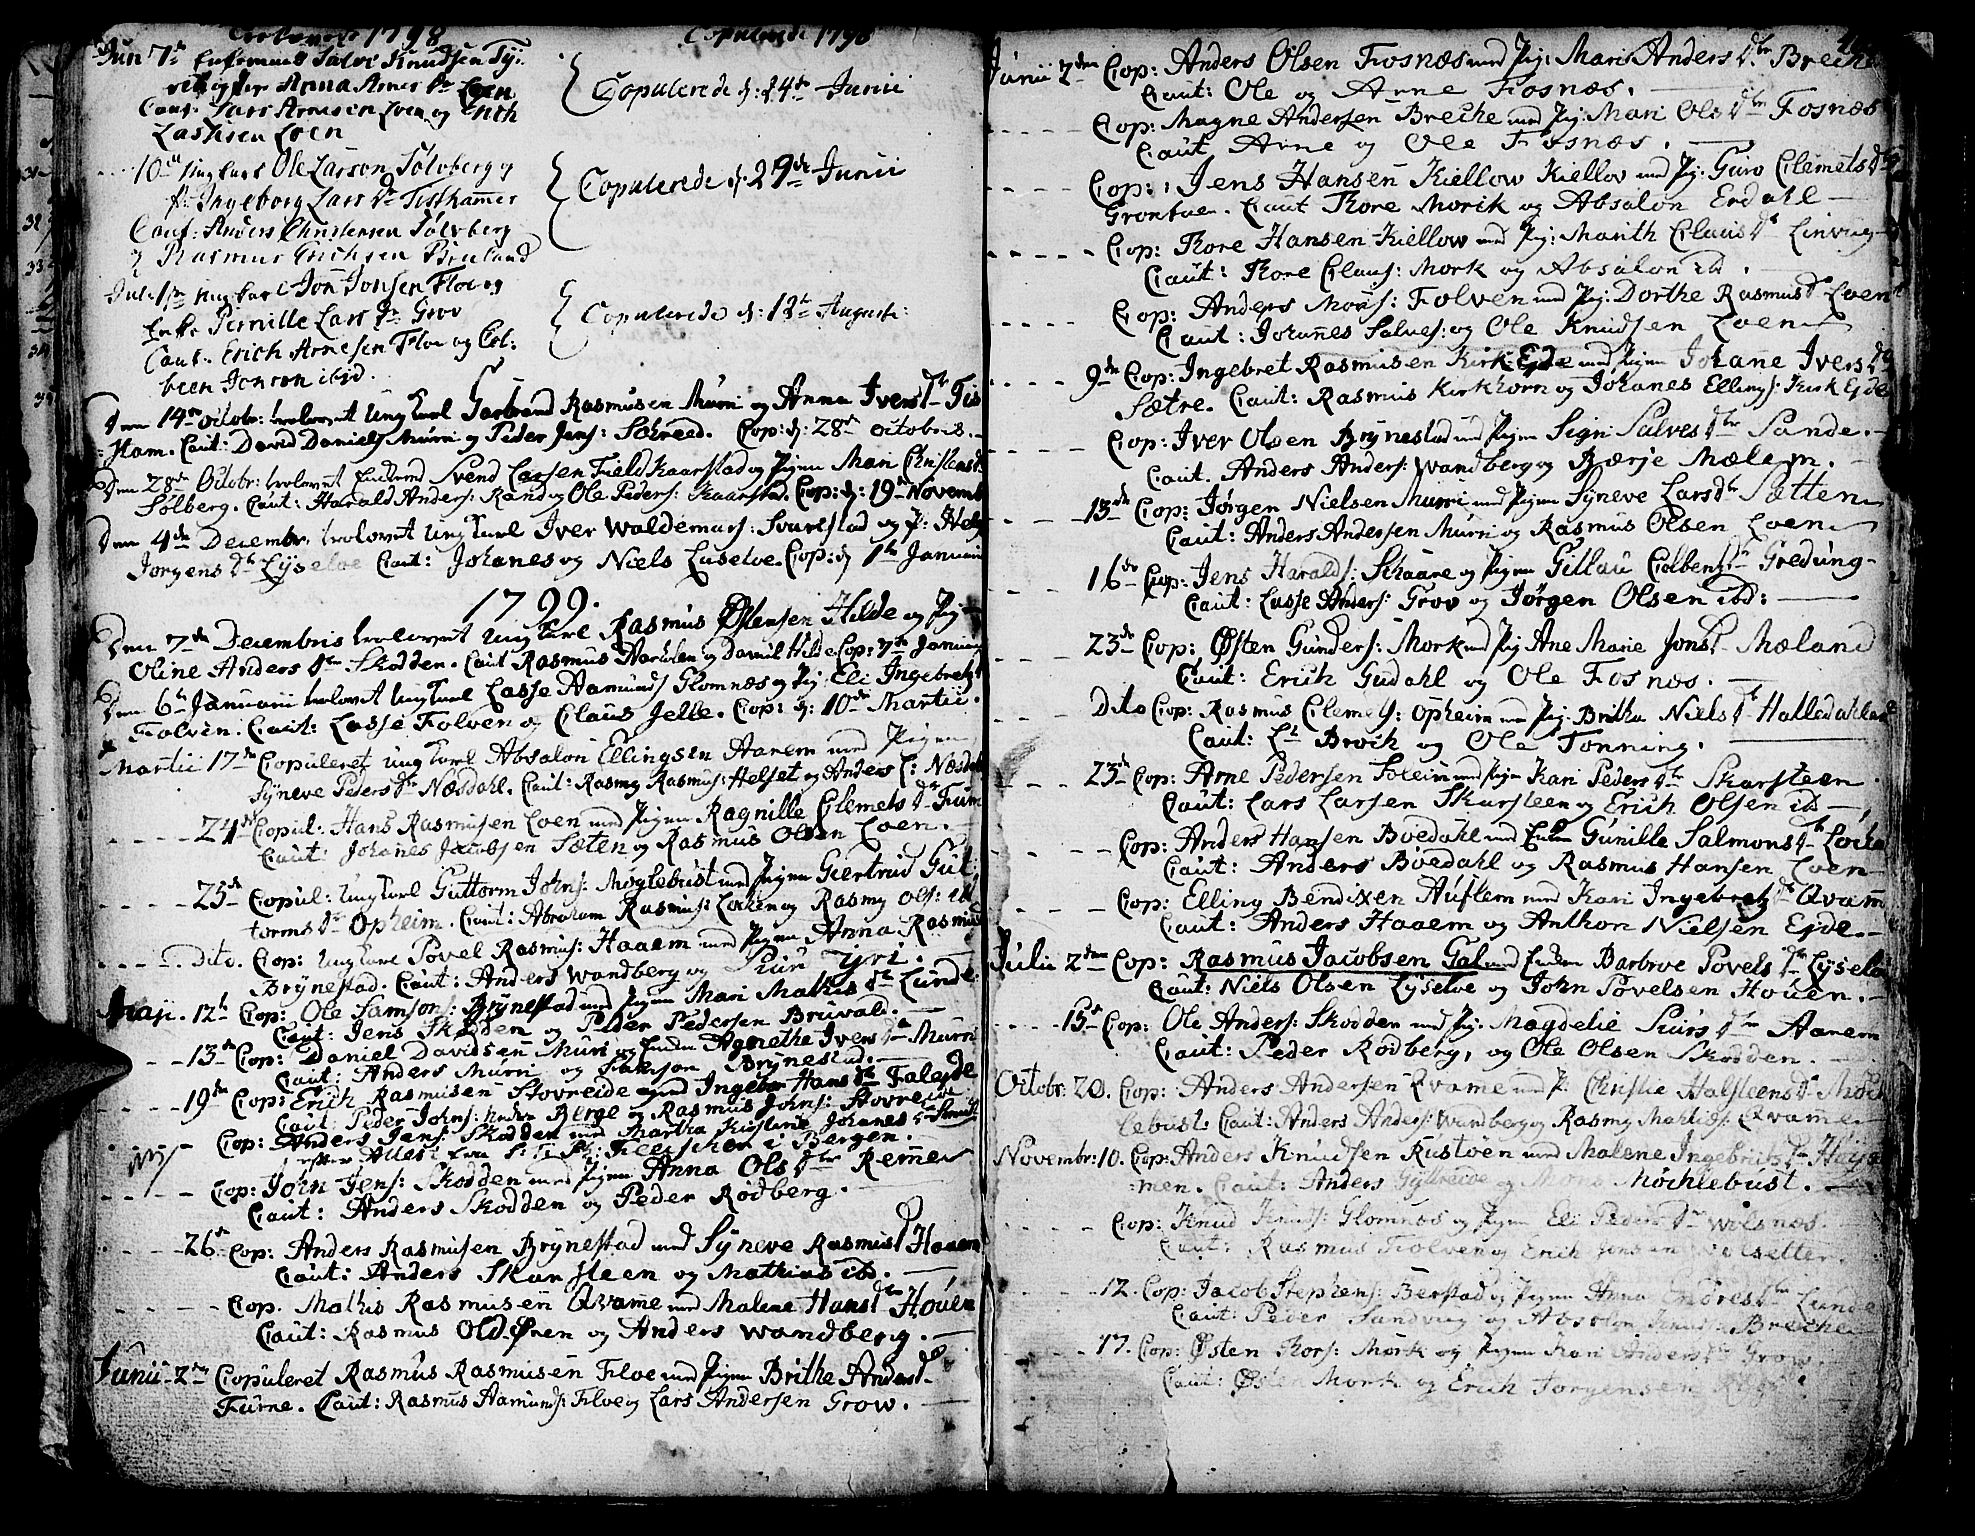 1798
Copulerede 1798
Jun 7de Enkemand Salve Knudsen Tÿ-
og Anna Arnes dr Loen
Caut. Lars Arnesen Loen og Erich
Lassesen Loen
Copulerede d: 24de Junii
10de Ungkarl Ole Larsen Sölvberg og
P. Ingeborg Lars dr Tisthammer
Caut: Anders Christensen Sölvberg
& Rasmus Erichsen Bruland
Copulerede d. 29de Junii
Juli 1ste Ungkarl Jon Jonsen Floe og
Enke Pernille Lars dr Grov
Caut. Erich Arnesen Floe og Col-
been Jonsen ibid.
Copulerede d: 12te Augusti:
Den 14de Octobr: trolovet Ungkarl Rasmusen Murri og Anna Ivers dr Tis
Ham. Caut: David Daniels: Murri og Peder Jens: Schreed. Cop: d: 28de Octobris.
Den 28de Octobr: trolovet Enkemd Svend Larsen Field Kaarstad og Pigen Mari Christens d.
Solberg. Caut: Harald Anders: Rand og Ole Peders: Kaarstad. Cop: d: 19de Novemb
Den 4de Decembr. trolovet Ungkarl Iver Waldemars: Svarstad og P:
Jorgens dr Lyselve Caut: Johanes og Niels Luselve. Cop: d 1ste Januarii
1799.
Den 7de Decembris trolovet Ungkarl Rasmus Østensen Hilde og Pig:
Oline Anders dr Skodden. Caut Rasmus og Daniel Hilde Cop: 7de Januarii
Den 6te Januarii trolovet Ungkarl Lasse Aamunds: Glomnæs og Pig. Eli Ingebretz d
Folven. Caut: Lasse Folven og Claus Jelle. Cop: d: 10de Martii.
Martii 17de Copuleret Ungkarl Absalon Ellingsen Aarem med Pigen
Syneve Peders dr Næsdahl. Caut: Rasmg Rasmus: Helset og Anders C: Næsdal
24de Copul: Hans Rasmusen Loen med Pigen Ragnille Clemets dr Tum
Caut: Johanes Jacobsen Sæten og Rasmus Olsen Loen.
25de Copul: Ungkarl Guttorm Johns: Möglebust med Pigen Giertrud Gut-
torms dr Opheim. Caut: Abraham Rasmus: og Rasmg Ols: ibd
Dito. Cop: Ungkarl Povel Rasmus: Haaem med Pigen Anna Rasmus
Brynestad. Caut: Anders Wandberg og
Maji. 12te Cop: Ole Samsons: Brynestad med Pigen Mari Mathis dr Lunde
Caut: Jens Skodden og Peder Pedersen Bruvald.
13de Cop: Daniel Davidsen Muri og Enken Agnethe Ivers dr Murri
Caut: Anders Murri og Samson Brynestad.
19de Cop: Erich Rasmusen Stovreide med Ingebor Hans dr Faleide
Caut: Peder Johns: Berge og Rasmus Johns: Stovreide
Cop: Anders Jens: Skodden med Martha Kirstine Johanes dr
efter Attest fra i Bergen.
Cop: John Jens: Skodden med Pigen Anna Ols dr Remme
Caut: Anders Skodden og Peder Rödberg.
26de Cop: Anders Rasmusen Brynestad med Syneve Rasmus d Haaem
Caut: Anders Skarsteen og Mathias ibd.
Cop. Mathis Rasmusen Qvame med Malene Hans dr Houen
Caut: Rasmus OldØren og Anders Wandberg.
Junii 2den Copuleret Rasmus Rasmusen Floe med Pigen Brithe Anders d
Furne. Caut: Rasmus Aamunds: Floe og Lars Andersen Grow.
Junii 2den Cop: Anders Olsen Fosnæs med Pig: Mari Anders dr Breche
Caut: Ole og Arne Fosnæs.
Cop: Magne Andersen Breche med Pig: Mari Ols dr Fosnæs
Caut Arne og Ole Fosnæs.
Cop: Jens Hansen Kiellow Kiellov med Pig: Guro Clemets dr
Grontue. Caut Thore Morck og Absalon Erdahl
Cop: Thore Hansen Kiellow med Pig: Marith Claus dr Linvig
Caut: Thore Claus: Mork og Absalon ibd.
Cop: Anders Mons: Folven med Pig: Dorthe Rasmus dr Loen
Caut: Johanes Salves: og Ole Knudsen Loen
9de Cop: Ingebret Rasmusen Kirk-Ejde med Pigen Johane Ivers dr
Sætre. Caut: Rasmus Kirkhorn og Johanes Ellings: Kirk Ejde
Cop: Iver Olsen Brynestad med Pigen Signi Salves dr Sande.
Caut. Anders Anders: Wandberg og Børje Mælem.
13de Cop: Jørgen Nielsen Murri med Pigen Syneve Lars dr Sætten
Caut: Anders Andersen Murri og Rasmus Olsen Loen
16de Cop: Jens Haralds: Skaare og Pigen Gillau Colbens dr Greding-
Caut: Lasse Anders: Grov og Jørgen Olsen ibd:
23de Cop: Østen Gunders: Mork med Pig Ane Marie Jons d Mæland
Caut: Erich Gudahl og Ole Fosnæs.
Dito Cop: Rasmus Clemetz: Opheim med Pig: Britha Niels dr Halledahl
Caut: Broch og Ole Tonning.
23de Cop: Arne Pedersen Solein med Pigen Kari Peders dr Skarsteen
Caut: Lars Larsen Skarsteen og Erich Olsen ibd
Cop: Anders Hansen Bödahl med Enken Gunille Salmons dr
Caut: Anders Bödahl og Rasmus Hansen Loen
Cop: Elling Bendixen Auflem med Kari Ingebretz dr Qvam
Caut: Anders Haaem og Anthon Nielsen Ejde.
Julii 2den Cop: Rasmus Jacobsen Gal med Enken Barbroe Povels dr Lyselv
Caut: Niels Olsen Lyselve og John Povelsen Houen.
15de Cop: Ole Anders: Skodden med Pig: Magdelie Siurs dr Aarem
Caut: Peder Rodberg, og Ole Olsen Skodden.
Octobr. 20. Cop: Anders Andersen Qvame med P: Christie Halsteens dr Moch
lebust. Caut: Anders Anders: Wandberg og Rasmg Mathis: Qvame
Novembr: 10. Cop: Anders Knudsen Rustøen med Malene Ingebrits dr
men. Caut: Anders Gyttreide og Mons Möchlebust.
Cop: Knud Knuds: Glomnæs og Pigen Eli Peders dr Wolsnæs
Caut: Rasmus Folven og Erich Jonsen Wolsetter
12. Cop: Jacob Stephens: Berstad og Pigen Anna Endres dr Lunde
Caut: Peder Sandvig og Absolon Breche
17. Cop: Østen Thors: Mork og Pigen Kari Anders dr Grow
Caut: Østen Mork og Erich Jorgensen